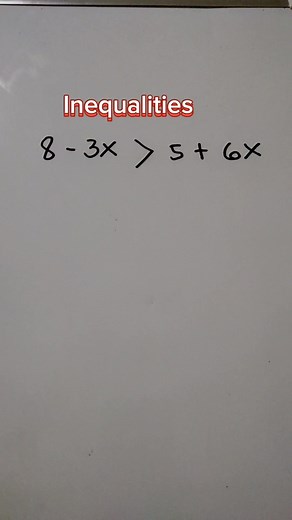 Inequalities
8 - 3x > 5 + 6x